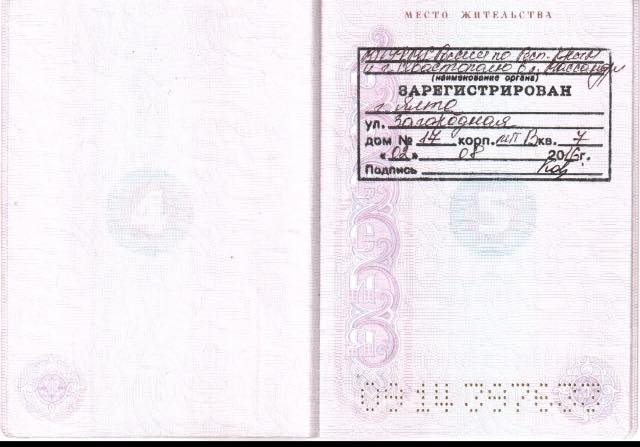 МЕСТО ЖИТЕЛЬСТВА
России по Респ. Крым
и г. Севастополю в
(наименование органа)
ЗАРЕГИСТРИРОВАН
г. Ялта
ул. Загородная
дом № 17 корп. кв. 7
«02» 08 2016г.
Подпись
4
5
09 14